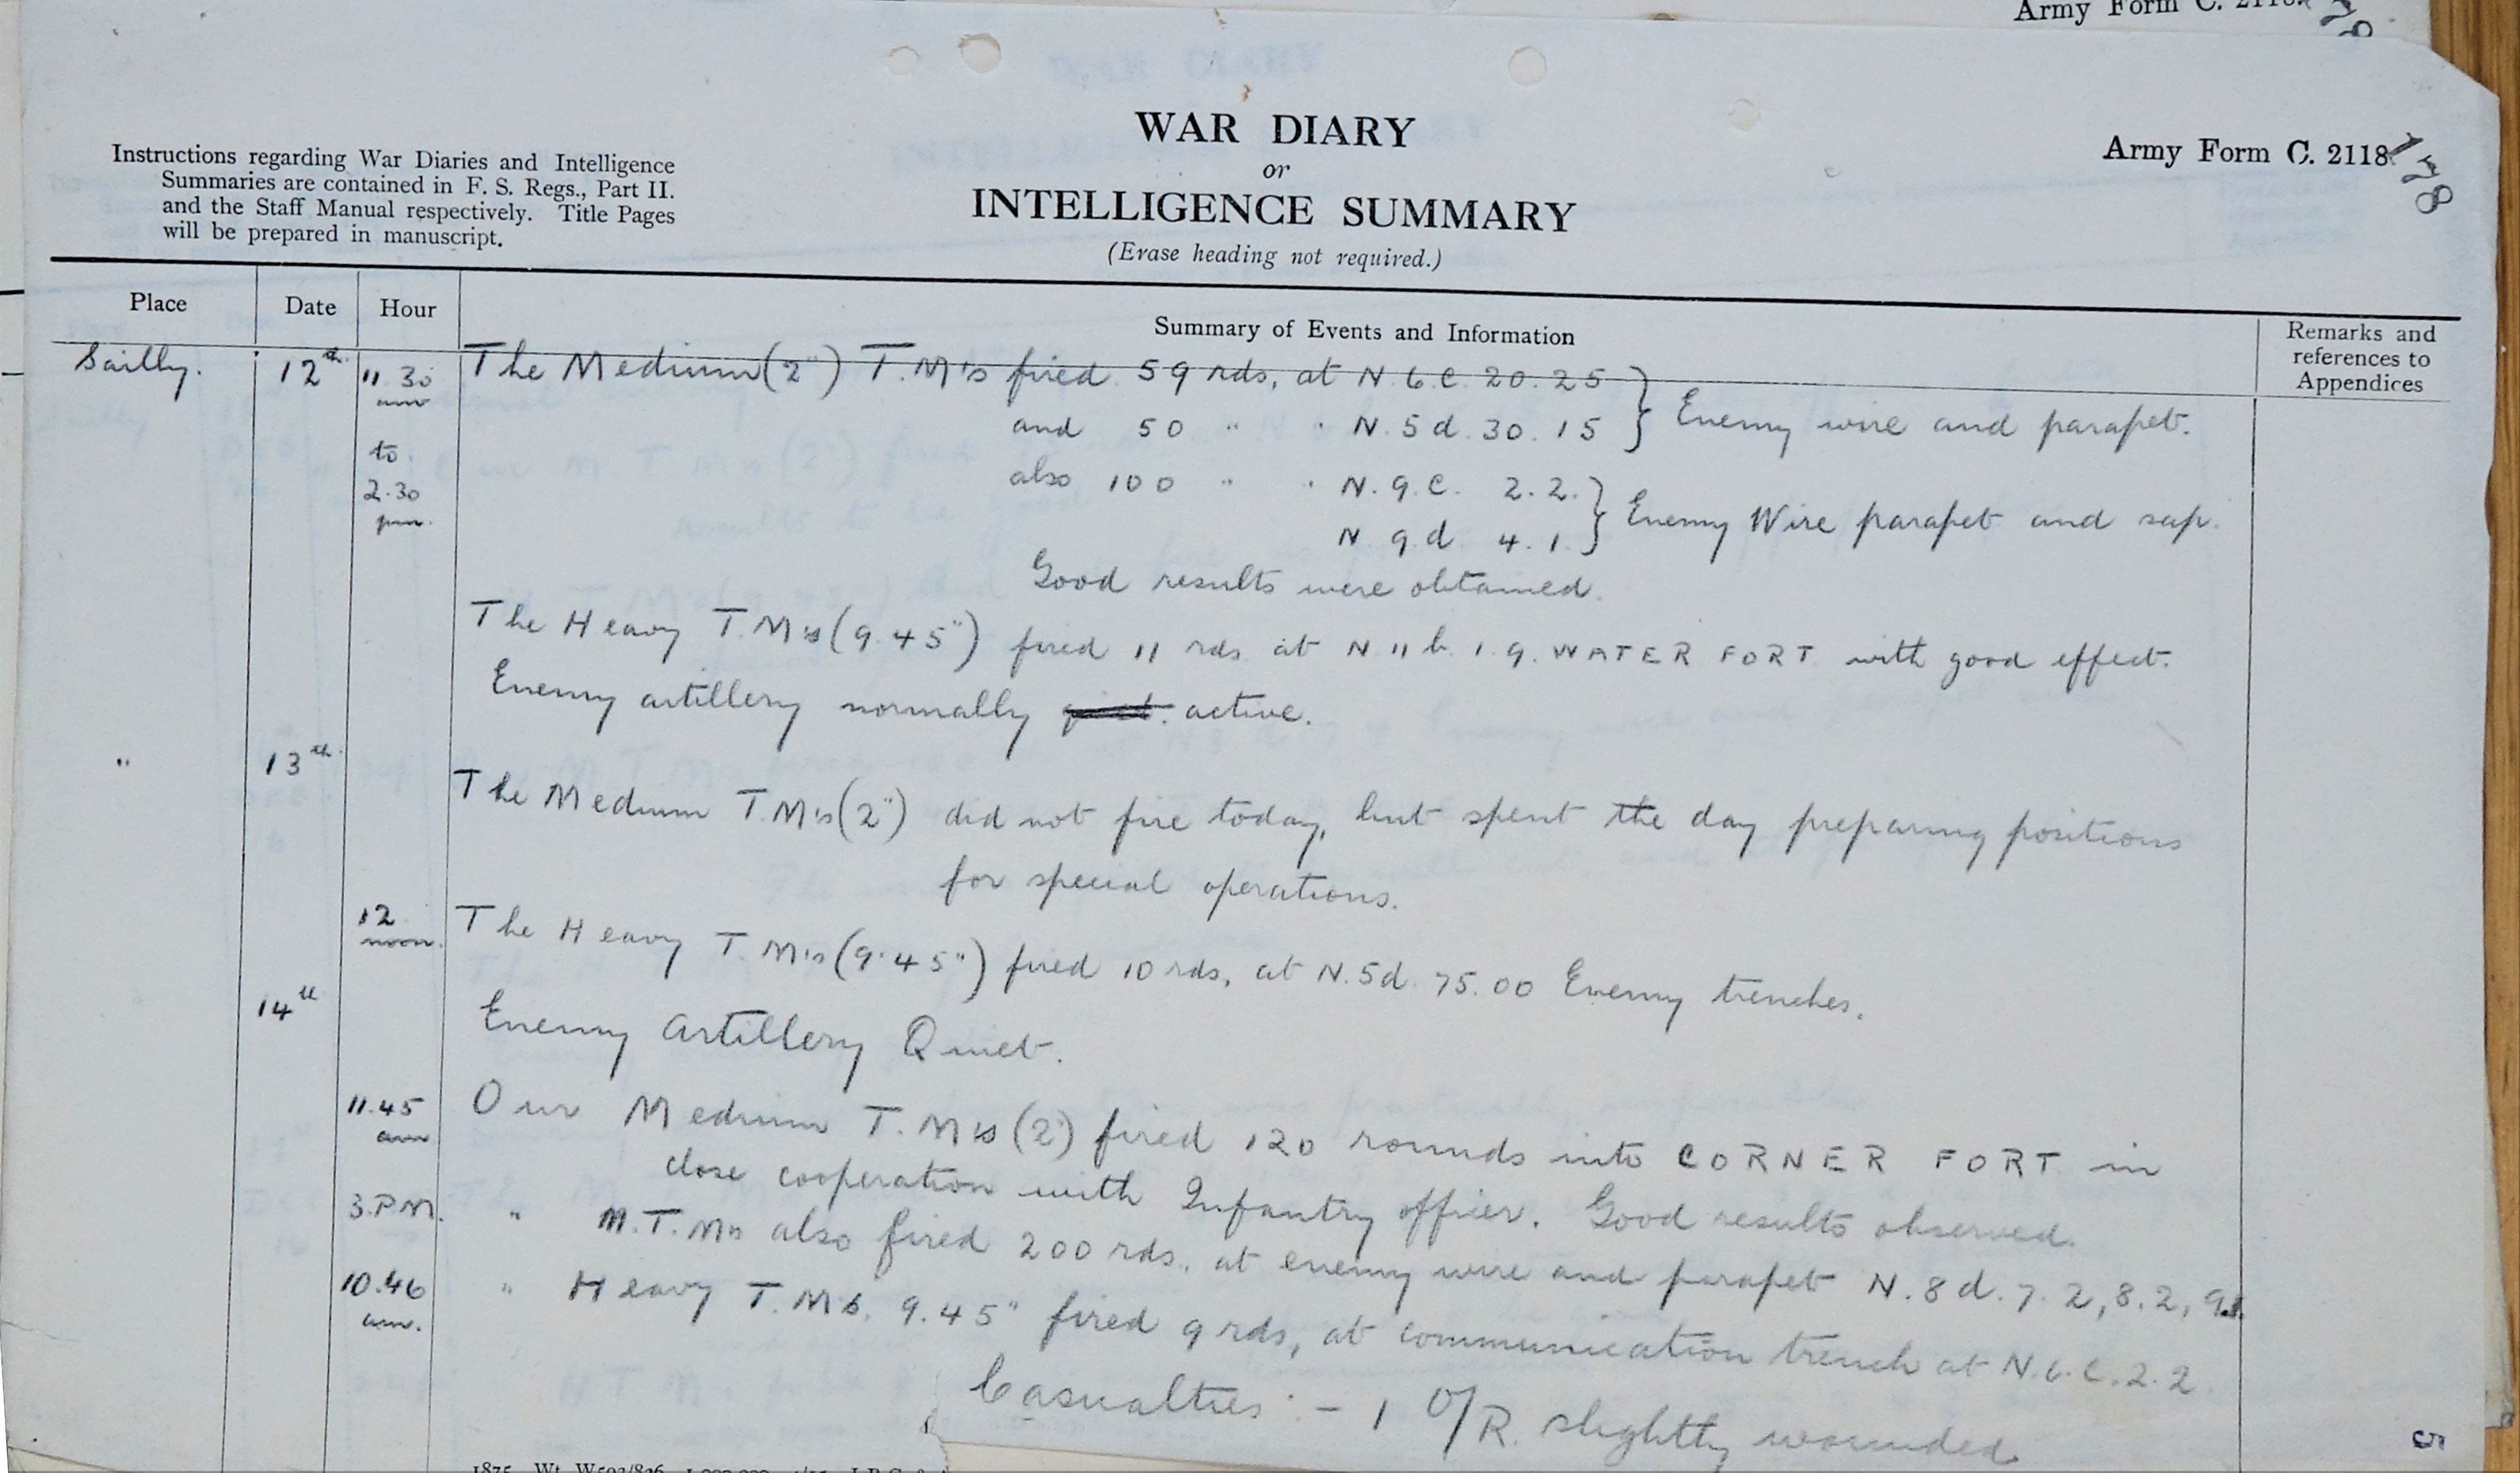 Army Form C. 2118.
WAR DIARY
or
INTELLIGENCE SUMMARY
(Erase heading not required.)
Army Form C. 2118.
178
Instructions regarding War Diaries and Intelligence
Summaries are contained in F. S. Regs., Part II.
and the Staff Manual respectively. Title Pages
will be prepared in manuscript.
Place Date Hour Summary of Events and Information Remarks and references to Appendices
Sailly. 12th 11.30 am to 2.30 pm. The Medium (2") T.M's fired 59 rds, at N.6.c.20.25 } Enemy wire and parapet.
and 50 " " N.5d.30.15
also 100 " " N.9.c. 2.2. } Enemy Wire parapet and sap.
N 9.d 4.1.
Good results were obtained.
The Heavy T.M's (9.45") fired 11 rds at N 11 b. 1.9. WATER FORT with good effect.
Enemy artillery normally quiet. active.
" 13th
The Medium T.M's (2") did not fire today, but spent the day preparing positions
for special operations.
12 noon. The Heavy T.M's (9.45") fired 10 rds, at N.5d.75.00 Enemy trenches.
14th
Enemy Artillery Quiet.
11.45 am Our Medium T.M's (2") fired 120 rounds into CORNER FORT in
close cooperation with Infantry officer. Good results observed.
3.P.M. " M.T.Ms also fired 200 rds. at enemy wire and parapet N.8d.7.2, 8.2,
10.40 am. " Heavy T.M's. 9.45" fired 9 rds, at communication trench at N.6.c.2.2.
Casualties :- 1 O/R. slightly wounded
1875 Wt. W593/826